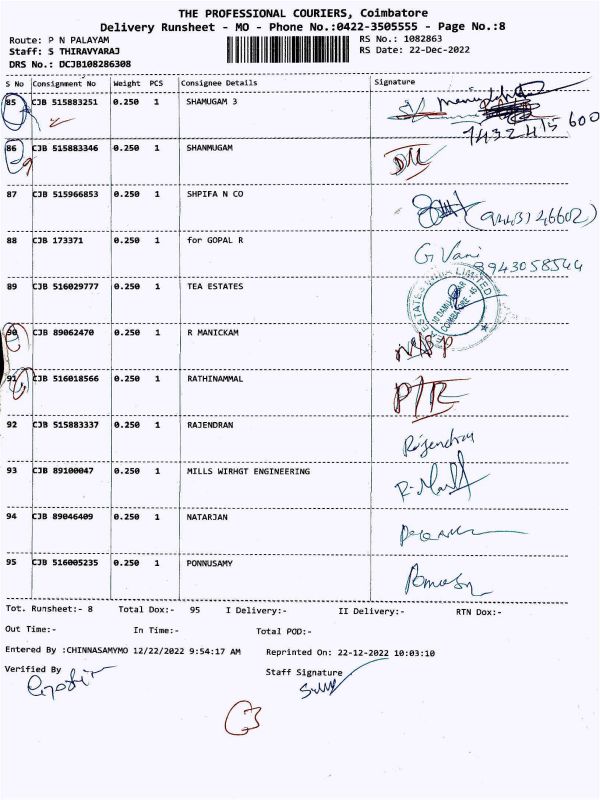 THE PROFESSIONAL COURIERS, Coimbatore
Delivery Runsheet - MO - Phone No.:0422-3505555 - Page No.:8
Route: P N PALAYAM RS No.: 1082863
Staff: S THIRAVYARAJ RS Date: 22-Dec-2022
DRS No.: DCJB108286308
S No Consignment No Weight PCS Consignee Details Signature
85 CJB 515883251 0.250 1 SHAMUGAM 3
7432415600
86 CJB 515883346 0.250 1 SHANMUGAM
87 CJB 515966853 0.250 1 SHPIFA N CO
(9443146602)
88 CJB 173371 0.250 1 for GOPAL R G Vani
9943058544
89 CJB 516029777 0.250 1 TEA ESTATES
90 CJB 89062470 0.250 1 R MANICKAM
91 CJB 516018566 0.250 1 RATHINAMMAL
92 CJB 515883337 0.250 1 RAJENDRAN Rajendran
93 CJB 89100047 0.250 1 MILLS WIRHGT ENGINEERING
94 CJB 89046409 0.250 1 NATARJAN
95 CJB 516005235 0.250 1 PONNUSAMY
Tot. Runsheet:- 8 Total Dox:- 95 I Delivery:- II Delivery:- RTN Dox:-
Out Time:- In Time:- Total POD:-
Entered By :CHINNASAMYMO 12/22/2022 9:54:17 AM Reprinted On: 22-12-2022 10:03:10
Verified By Staff Signature